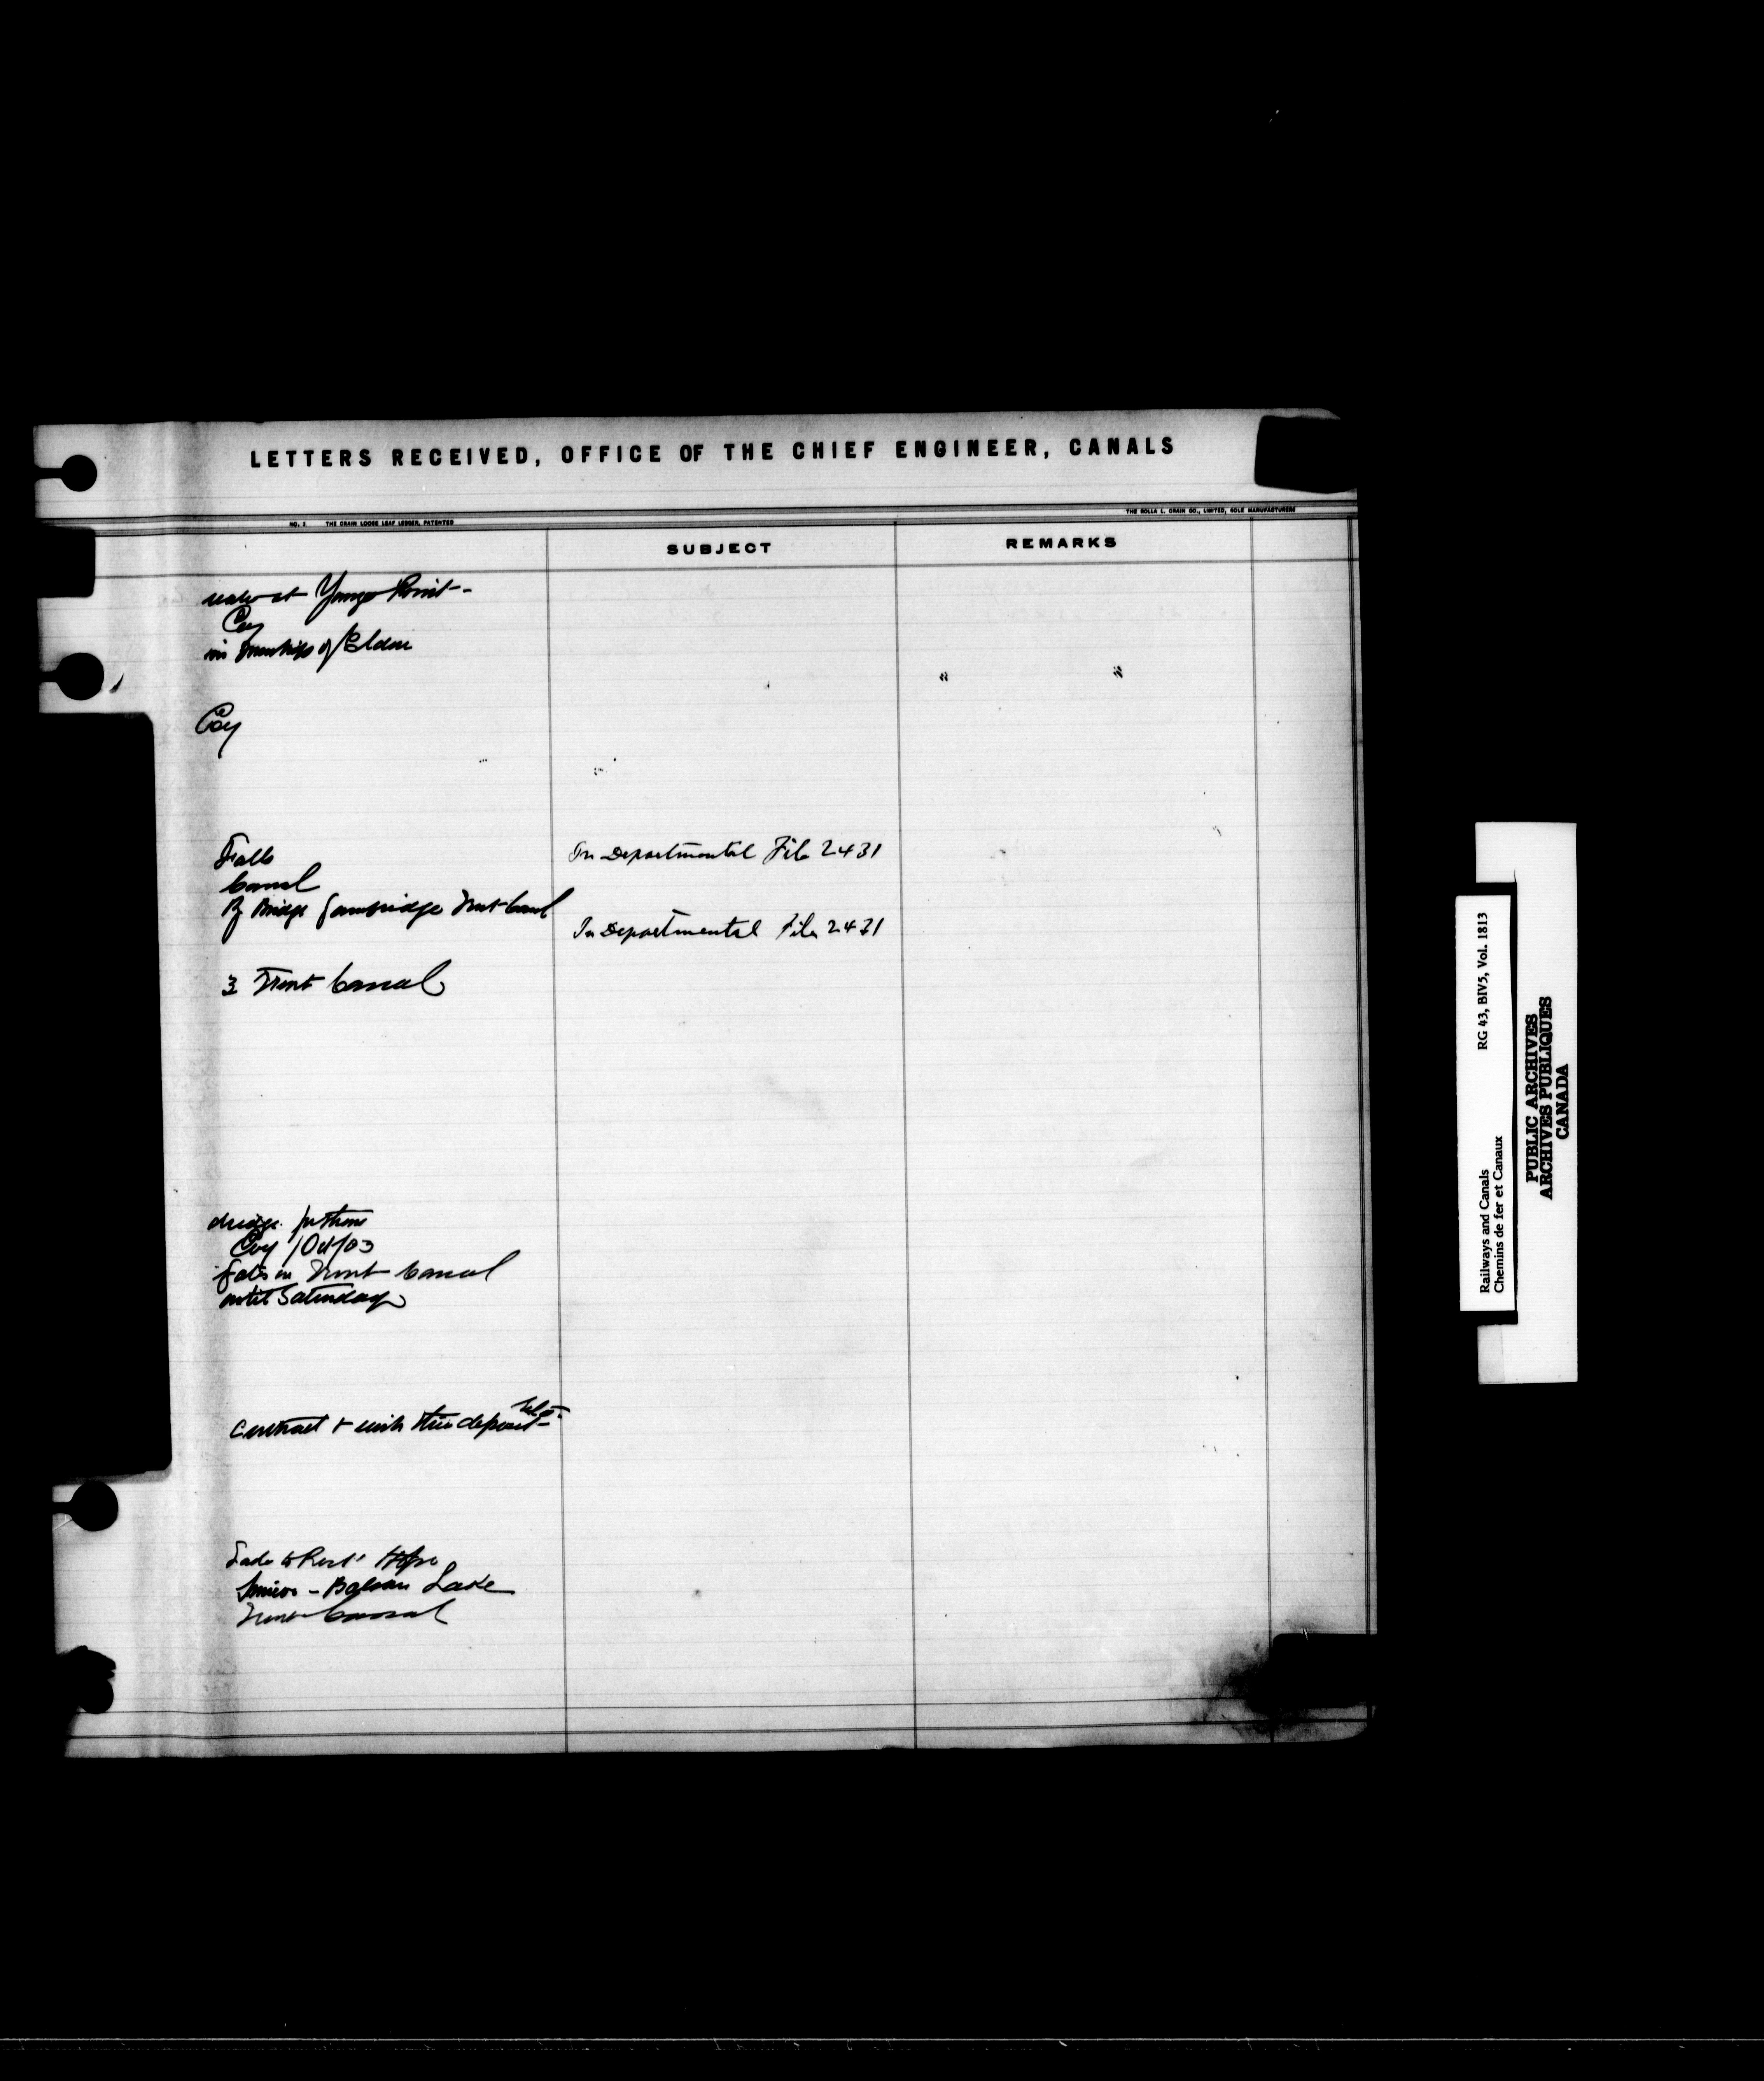 LETTERS RECEIVED, OFFICE OF THE CHIEF ENGINEER, CANALS
NO. 1 THE CRAIN LOOSE LEAF LEDGER, PATENTED
THE ROLLA L. CRAIN CO., LIMITED, SOLE MANUFACTURERS
SUBJECT
REMARKS
at Youngs Point-
Coy
in Townships of Eldon
Coy
Falls
Canal
Ry Bridge Gamebridge Trent Canal
In Departmental File 2431
In Departmental File 2431
3 Trent Canal
dredge
Coy 1 Oct/03
Trent Canal
until Saturday
Contract & with deposit-
to Port Hope
Simcoe - Balsam Lake
Trent Canal
Railways and Canals RG 43, BIV5, Vol. 1813
Chemins de fer et Canaux
PUBLIC ARCHIVES
ARCHIVES PUBLIQUES
CANADA